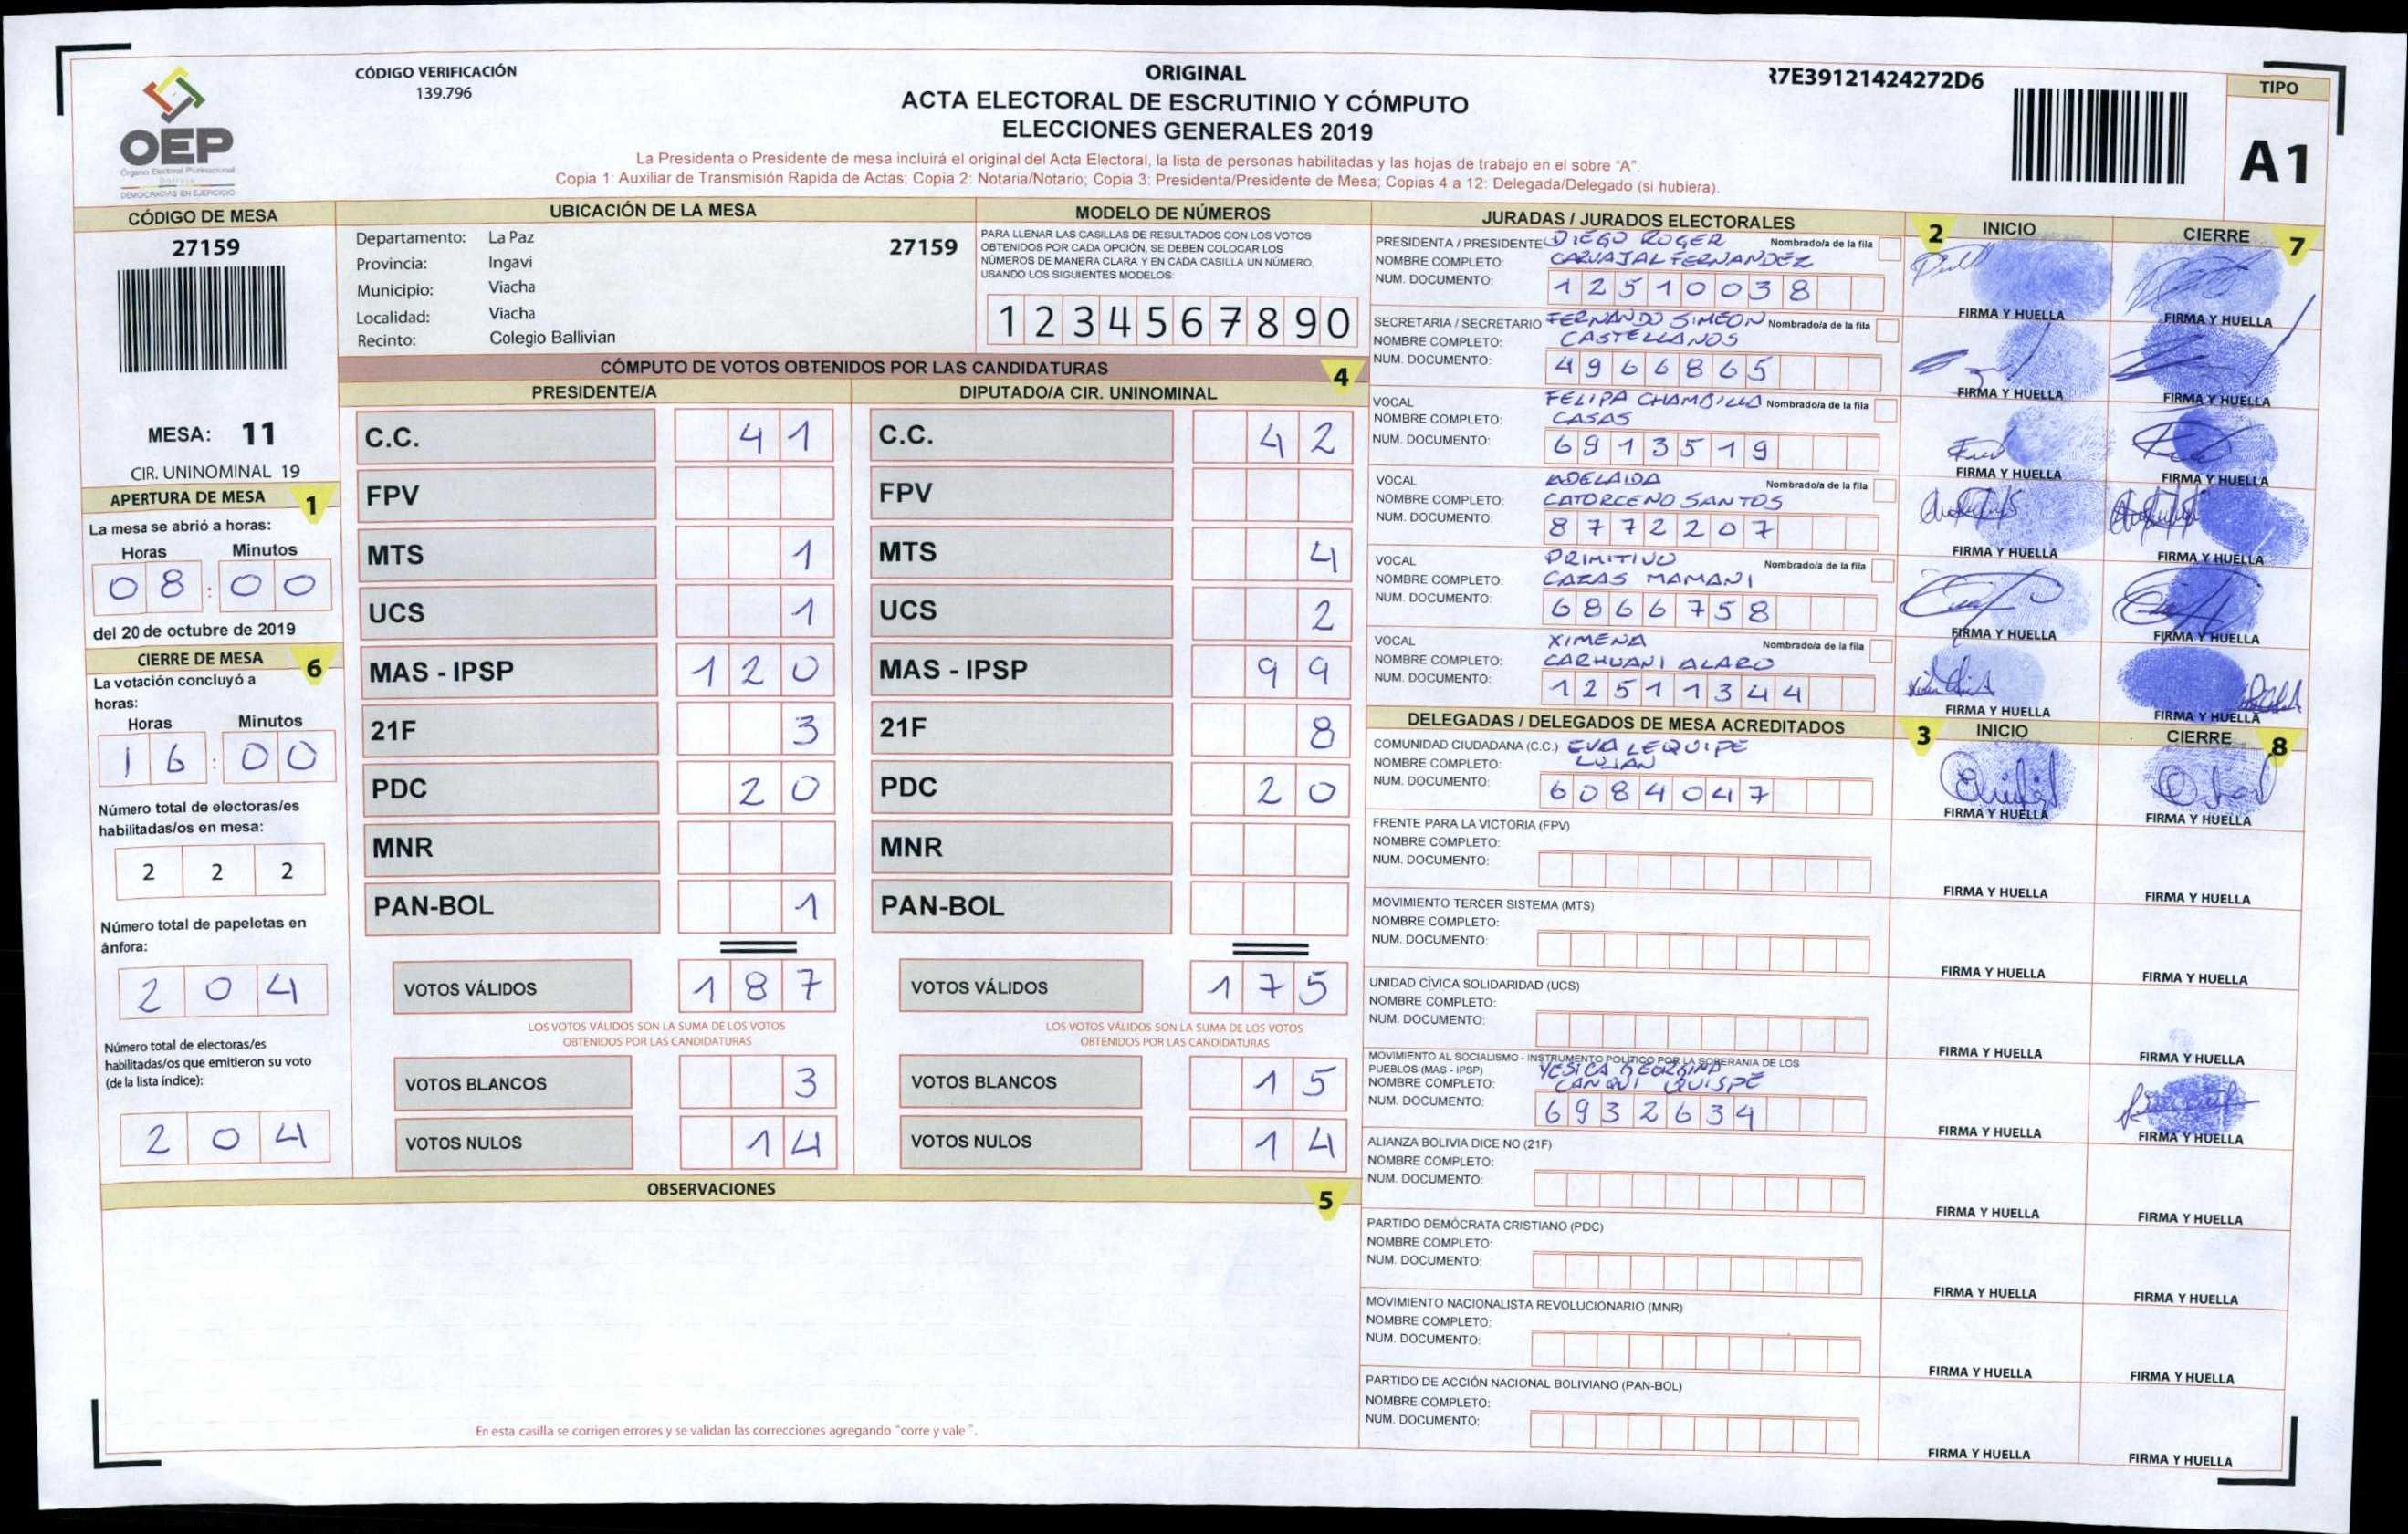 OEP
Órgano Electoral Plurinacional
Bolivia
DEMOCRACIAS EN EJERCICIO
CÓDIGO VERIFICACIÓN
139.796
ORIGINAL
ACTA ELECTORAL DE ESCRUTINIO Y CÓMPUTO
ELECCIONES GENERALES 2019
La Presidenta o Presidente de mesa incluirá el original del Acta Electoral, la lista de personas habilitadas y las hojas de trabajo en el sobre "A".
Copia 1: Auxiliar de Transmisión Rapida de Actas; Copia 2: Notaria/Notario; Copia 3: Presidenta/Presidente de Mesa; Copias 4 a 12: Delegada/Delegado (si hubiera).
37E39121424272D6
TIPO
A1
CÓDIGO DE MESA
27159
MESA: 11
CIR. UNINOMINAL 19
APERTURA DE MESA 1
La mesa se abrió a horas:
Horas Minutos
08:00
del 20 de octubre de 2019
CIERRE DE MESA 6
La votación concluyó a
horas:
Horas Minutos
16:00
Número total de electoras/es
habilitadas/os en mesa:
2 2 2
Número total de papeletas en
ánfora:
2 0 4
Número total de electoras/es
habilitadas/os que emitieron su voto
(de la lista índice):
2 0 4
UBICACIÓN DE LA MESA
Departamento: La Paz 27159
Provincia: Ingavi
Municipio: Viacha
Localidad: Viacha
Recinto: Colegio Ballivian
MODELO DE NÚMEROS
PARA LLENAR LAS CASILLAS DE RESULTADOS CON LOS VOTOS
OBTENIDOS POR CADA OPCIÓN, SE DEBEN COLOCAR LOS
NÚMEROS DE MANERA CLARA Y EN CADA CASILLA UN NÚMERO,
USANDO LOS SIGUIENTES MODELOS:
1 2 3 4 5 6 7 8 9 0
CÓMPUTO DE VOTOS OBTENIDOS POR LAS CANDIDATURAS 4
PRESIDENTE/A DIPUTADO/A CIR. UNINOMINAL
C.C. 41 C.C. 42
FPV FPV
MTS 1 MTS 4
UCS 1 UCS 2
MAS - IPSP 120 MAS - IPSP 99
21F 3 21F 8
PDC 20 PDC 20
MNR MNR
PAN-BOL 1 PAN-BOL
VOTOS VÁLIDOS 187 VOTOS VÁLIDOS 175
LOS VOTOS VÁLIDOS SON LA SUMA DE LOS VOTOS LOS VOTOS VÁLIDOS SON LA SUMA DE LOS VOTOS
OBTENIDOS POR LAS CANDIDATURAS OBTENIDOS POR LAS CANDIDATURAS
VOTOS BLANCOS 3 VOTOS BLANCOS 15
VOTOS NULOS 14 VOTOS NULOS 14
OBSERVACIONES 5
En esta casilla se corrigen errores y se validan las correcciones agregando "corre y vale".
JURADAS / JURADOS ELECTORALES 2 INICIO CIERRE 7
PRESIDENTA / PRESIDENTE DIEGO ROGER Nombrado/a de la fila
NOMBRE COMPLETO: CARVAJAL FERNANDEZ
NUM. DOCUMENTO: 12510038
FIRMA Y HUELLA FIRMA Y HUELLA
SECRETARIA / SECRETARIO FERNANDO SIMEON Nombrado/a de la fila
NOMBRE COMPLETO: CASTELLANOS
NUM. DOCUMENTO: 4966865
FIRMA Y HUELLA FIRMA Y HUELLA
VOCAL FELIPA CHAMBILLA Nombrado/a de la fila
NOMBRE COMPLETO: CASAS
NUM. DOCUMENTO: 6913519
FIRMA Y HUELLA FIRMA Y HUELLA
VOCAL ADELAIDA Nombrado/a de la fila
NOMBRE COMPLETO: CATORCENO SANTOS
NUM. DOCUMENTO: 8772207
FIRMA Y HUELLA FIRMA Y HUELLA
VOCAL PRIMITIVO Nombrado/a de la fila
NOMBRE COMPLETO: CAZAS MAMANI
NUM. DOCUMENTO: 6866758
FIRMA Y HUELLA FIRMA Y HUELLA
VOCAL XIMENA Nombrado/a de la fila
NOMBRE COMPLETO: CARHUANI ALARO
NUM. DOCUMENTO: 12511344
FIRMA Y HUELLA FIRMA Y HUELLA
DELEGADAS / DELEGADOS DE MESA ACREDITADOS 3 INICIO CIERRE 8
COMUNIDAD CIUDADANA (C.C.) EVA LEQUIPE
NOMBRE COMPLETO: LUJAN
NUM. DOCUMENTO: 6084047
FIRMA Y HUELLA FIRMA Y HUELLA
FRENTE PARA LA VICTORIA (FPV)
NOMBRE COMPLETO:
NUM. DOCUMENTO:
FIRMA Y HUELLA FIRMA Y HUELLA
MOVIMIENTO TERCER SISTEMA (MTS)
NOMBRE COMPLETO:
NUM. DOCUMENTO:
FIRMA Y HUELLA FIRMA Y HUELLA
UNIDAD CÍVICA SOLIDARIDAD (UCS)
NOMBRE COMPLETO:
NUM. DOCUMENTO:
FIRMA Y HUELLA FIRMA Y HUELLA
MOVIMIENTO AL SOCIALISMO - INSTRUMENTO POLÍTICO POR LA SOBERANIA DE LOS
PUEBLOS (MAS - IPSP) YESICA GEORGINA
NOMBRE COMPLETO: CANQUI QUISPE
NUM. DOCUMENTO: 6932634
FIRMA Y HUELLA FIRMA Y HUELLA
ALIANZA BOLIVIA DICE NO (21F)
NOMBRE COMPLETO:
NUM. DOCUMENTO:
FIRMA Y HUELLA FIRMA Y HUELLA
PARTIDO DEMÓCRATA CRISTIANO (PDC)
NOMBRE COMPLETO:
NUM. DOCUMENTO:
FIRMA Y HUELLA FIRMA Y HUELLA
MOVIMIENTO NACIONALISTA REVOLUCIONARIO (MNR)
NOMBRE COMPLETO:
NUM. DOCUMENTO:
FIRMA Y HUELLA FIRMA Y HUELLA
PARTIDO DE ACCIÓN NACIONAL BOLIVIANO (PAN-BOL)
NOMBRE COMPLETO:
NUM. DOCUMENTO:
FIRMA Y HUELLA FIRMA Y HUELLA